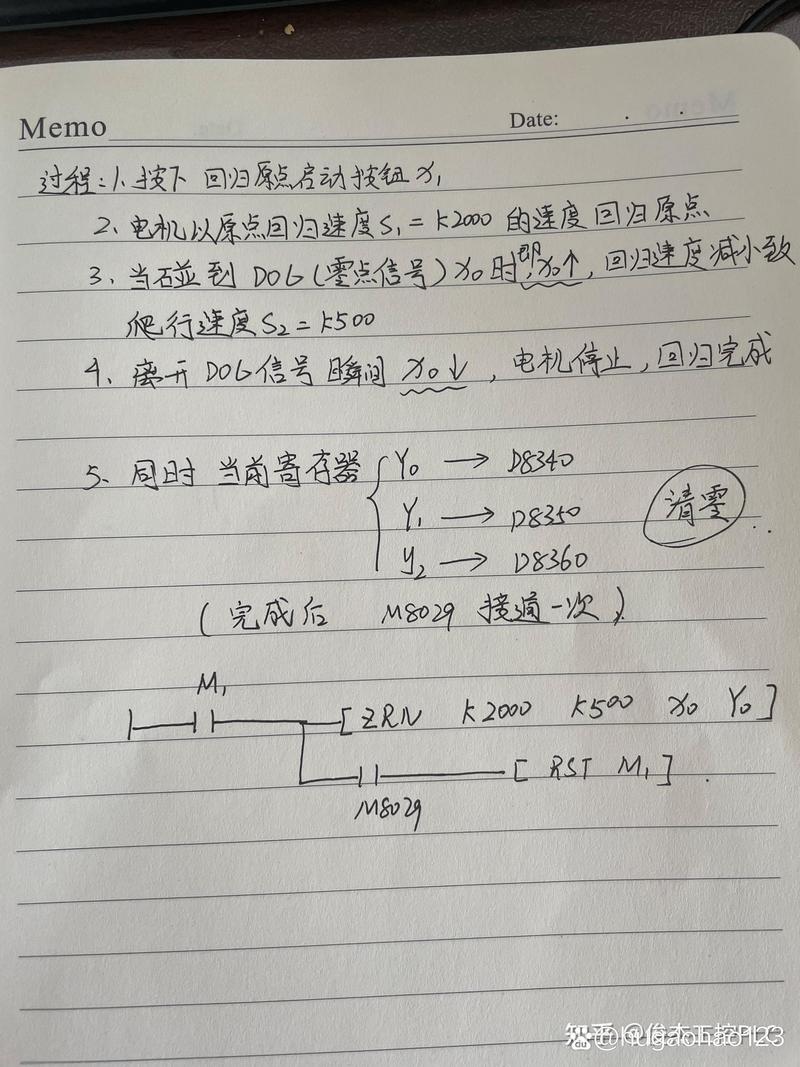 Memo Date:
过程:1、按下 回归原点启动按钮 X1
2、电机以原点回归速度S1=K2000 的速度 回归原点
3、当碰到 DOG(零点信号)X0时,即X0↑,回归速度减小致
爬行速度S2=K500
4、离开DOG信号 瞬间 X0↓,电机停止,回归完成
5、同时 当前寄存器 { Y0 → D8340
Y1 → D8350 清零
Y2 → D8360
(完成后 M8029 接通一次)
M1
[ZRN K2000 K500 X0 Y0]
[RST M1]
M8029
知乎 @俊杰工控PLC